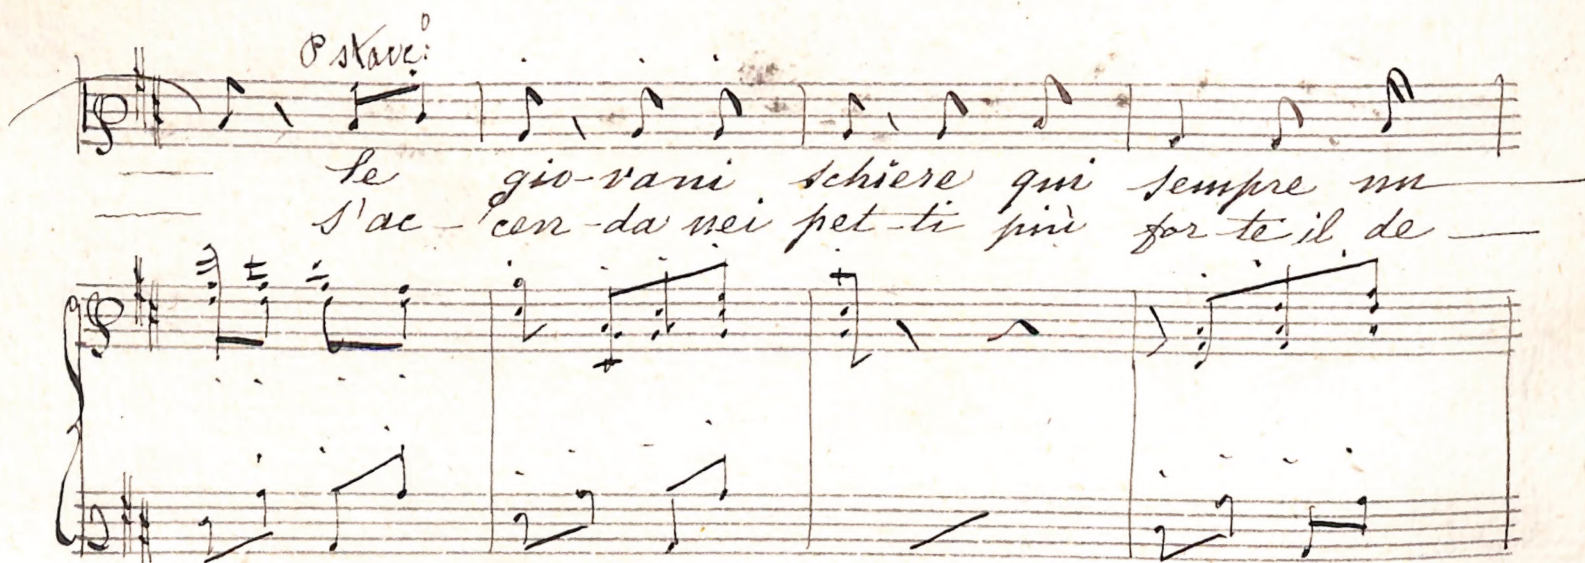 P stacc:
le gio-vani schiere qui sempre un
s'ac-cen-da nei pet-ti più for-te il de